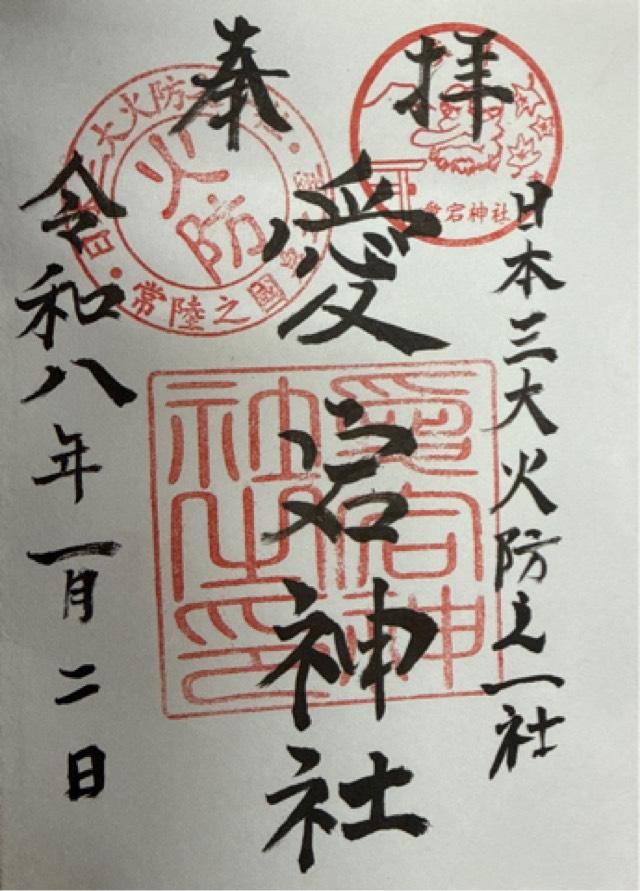 奉拝
日本三大火防之一社
愛宕神社
令和八年一月二日
火防
常陸之國
愛宕神社
愛宕神社之印